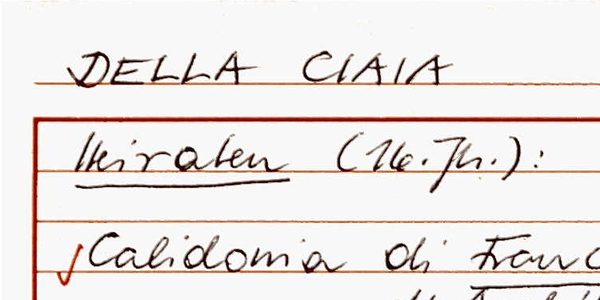 DELLA CIAIA
Heiraten (16. Jh.):
Calidonia di Franc
di